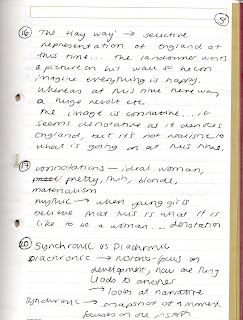 5
16 The 'Hay way' → selective
representation of England at
this time... The landowner wants
a picture on his wall so he can
imagine everything is happy.
Whereas at this time there was
a huge revolt etc.
The image is connative... it
seems denotative as it denotes
England, but it's not realistic to
what is going on at this time.
17 connotations - ideal woman,
pretty, thin, blonde,
materialism
mythic → when young girls
believe that this is what it is
like to be a woman... denotation
20 Synchronic vs Diachronic
Diachronic → focus on
development, how one thing
leads to another
→ looks at narrative
Synchronic → snapshot of a moment
focuses on one